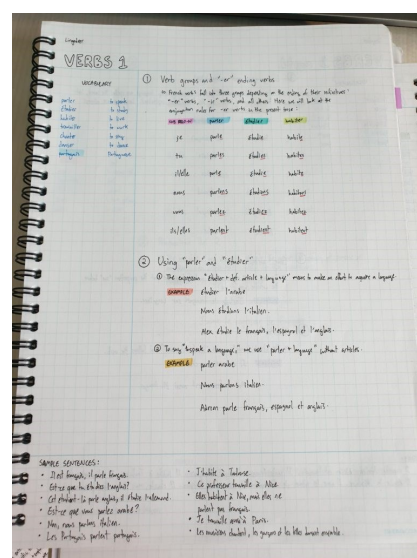 VERBS 1
VOCABULARY
parler to speak
étudier to study
habiter to live
travailler to work
chanter to sing
danser to dance
portugais Portuguese
① Verb groups and "-er" ending verbs
In French verbs fall into three groups depending on the ending of their infinitives:
"-er" verbs, "-ir" verbs, and all others. Here we will look at the
conjugation rules for -er verbs in the present tense:
parler étudier habiter
je parle étudie habite
tu parles étudies habites
il/elle parle étudie habite
nous parlons étudions habitons
vous parlez étudiez habitez
ils/elles parlent étudient habitent
② Using "parler" and "étudier"
① The expression "étudier + def. article + language" means to make an effort to acquire a language.
EXAMPLE étudier l'arabe
Nous étudions l'italien.
Alex étudie le français, l'espagnol et l'anglais.
② To say "to speak a language," we use "parler + language" without articles.
EXAMPLE parler arabe
Nous parlons italien.
parle français, espagnol et anglais.
SAMPLE SENTENCES:
• Il est français, il parle français.
• Est-ce que tu étudies l'anglais?
• Cet étudiant-là parle anglais, il étudie l'allemand.
• Est-ce que vous parlez arabe?
• Non, nous parlons italien.
• Les Portugais parlent portugais.
• J'habite à Toulouse.
• Ce professeur travaille à Nice.
• Elles habitent à Nice, mais elles ne
parlent pas français.
• Je travaille aussi à Paris.
• Les musiciens chantent, les garçons et les filles dansent ensemble.